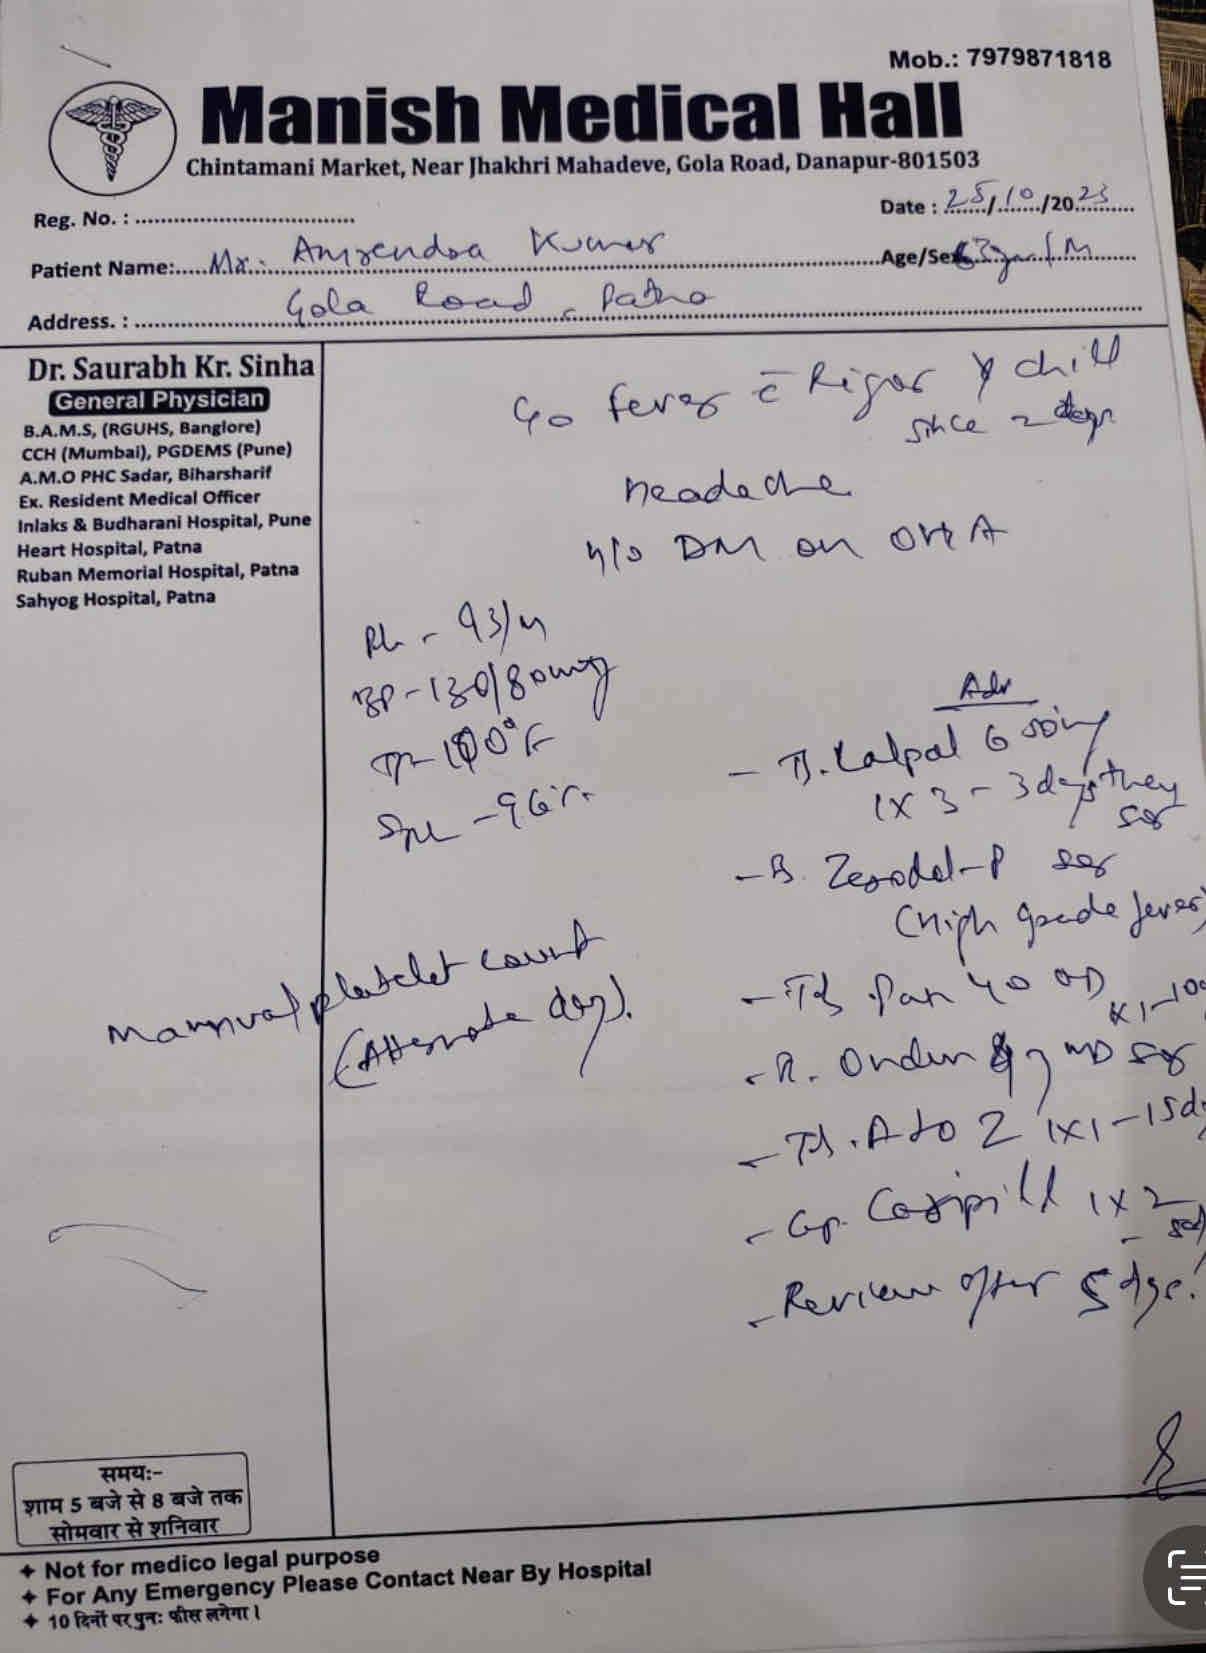 Mob.: 7979871818
Manish Medical Hall
Chintamani Market, Near Jhakhri Mahadeve, Gola Road, Danapur-801503
Reg. No. :
Date : 25/10/2023
Patient Name: Mr. Amrendra Kumar
Age/Sex 63 year/M
Address. : Gola Road, Patna
Dr. Saurabh Kr. Sinha
General Physician
B.A.M.S, (RGUHS, Banglore)
CCH (Mumbai), PGDEMS (Pune)
A.M.O PHC Sadar, Biharsharif
Ex. Resident Medical Officer
Inlaks & Budharani Hospital, Pune
Heart Hospital, Patna
Ruban Memorial Hospital, Patna
Sahyog Hospital, Patna
fever c̄ Rigor & chill
since 2 days
headache
h/o DM on OHA
93/m
BP - 130/80mmHg
100°F
96%
Manual platelet count
(Alternate day).
Adv
- T. Calpol 650mg
1x3 - 3 days then
sos
Zerodol-P sos
(High grade fever)
- Tab. Pan 40 OD
x1-10
MD sos
- Tab. A to Z 1x1 - 15d
- Cap. Caripill 1x2
- 5d
- Review after 5 days.
समय:-
शाम 5 बजे से 8 बजे तक
सोमवार से शनिवार
Not for medico legal purpose
For Any Emergency Please Contact Near By Hospital
10 दिनों पर पुनः फीस लगेगा।